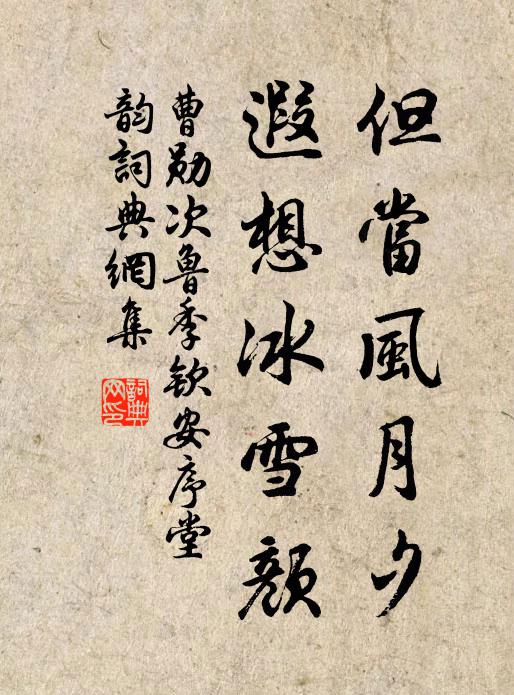 但當風月夕
遐想冰雪顏
曹勛次魯季欽安序堂
韵詞典網集
詞典网印